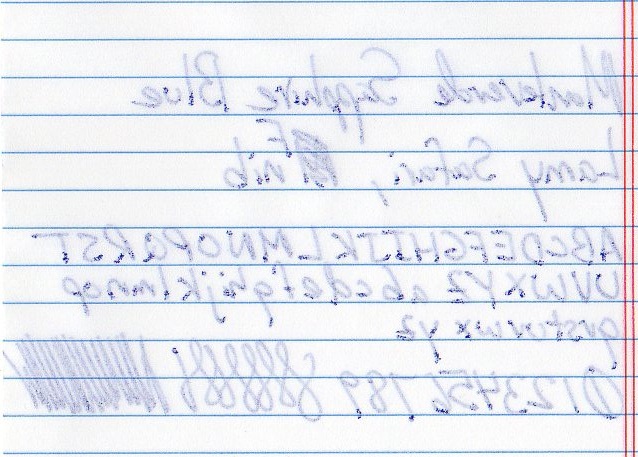 Monteverde Sapphire Blue
Lamy Safari, F nib
ABCDEFGHIJKLMNOPQRST
UVWXYZ abcdefghijklmnop
qrstuvwxyz
0123456789